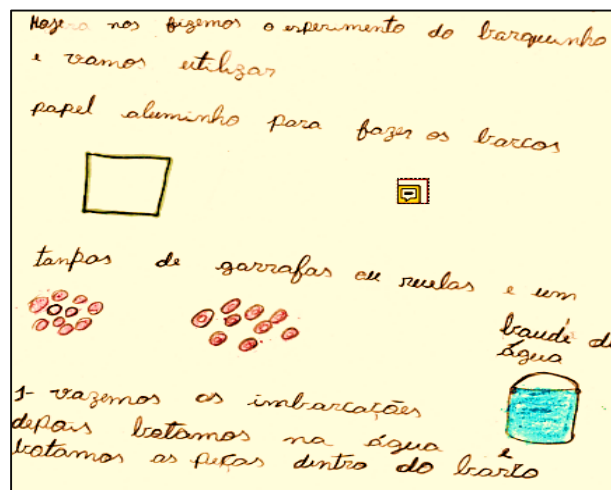 Hoje nos fizemos o esperimento do barquinho
e vamos utilizar
papel aluminho para fazer os barcos
tanpas de garrafas ou ruelas e um
baude de
água
1- vazemos as imbarcações
depois botamos na água e
botamos as peças dintro do barco